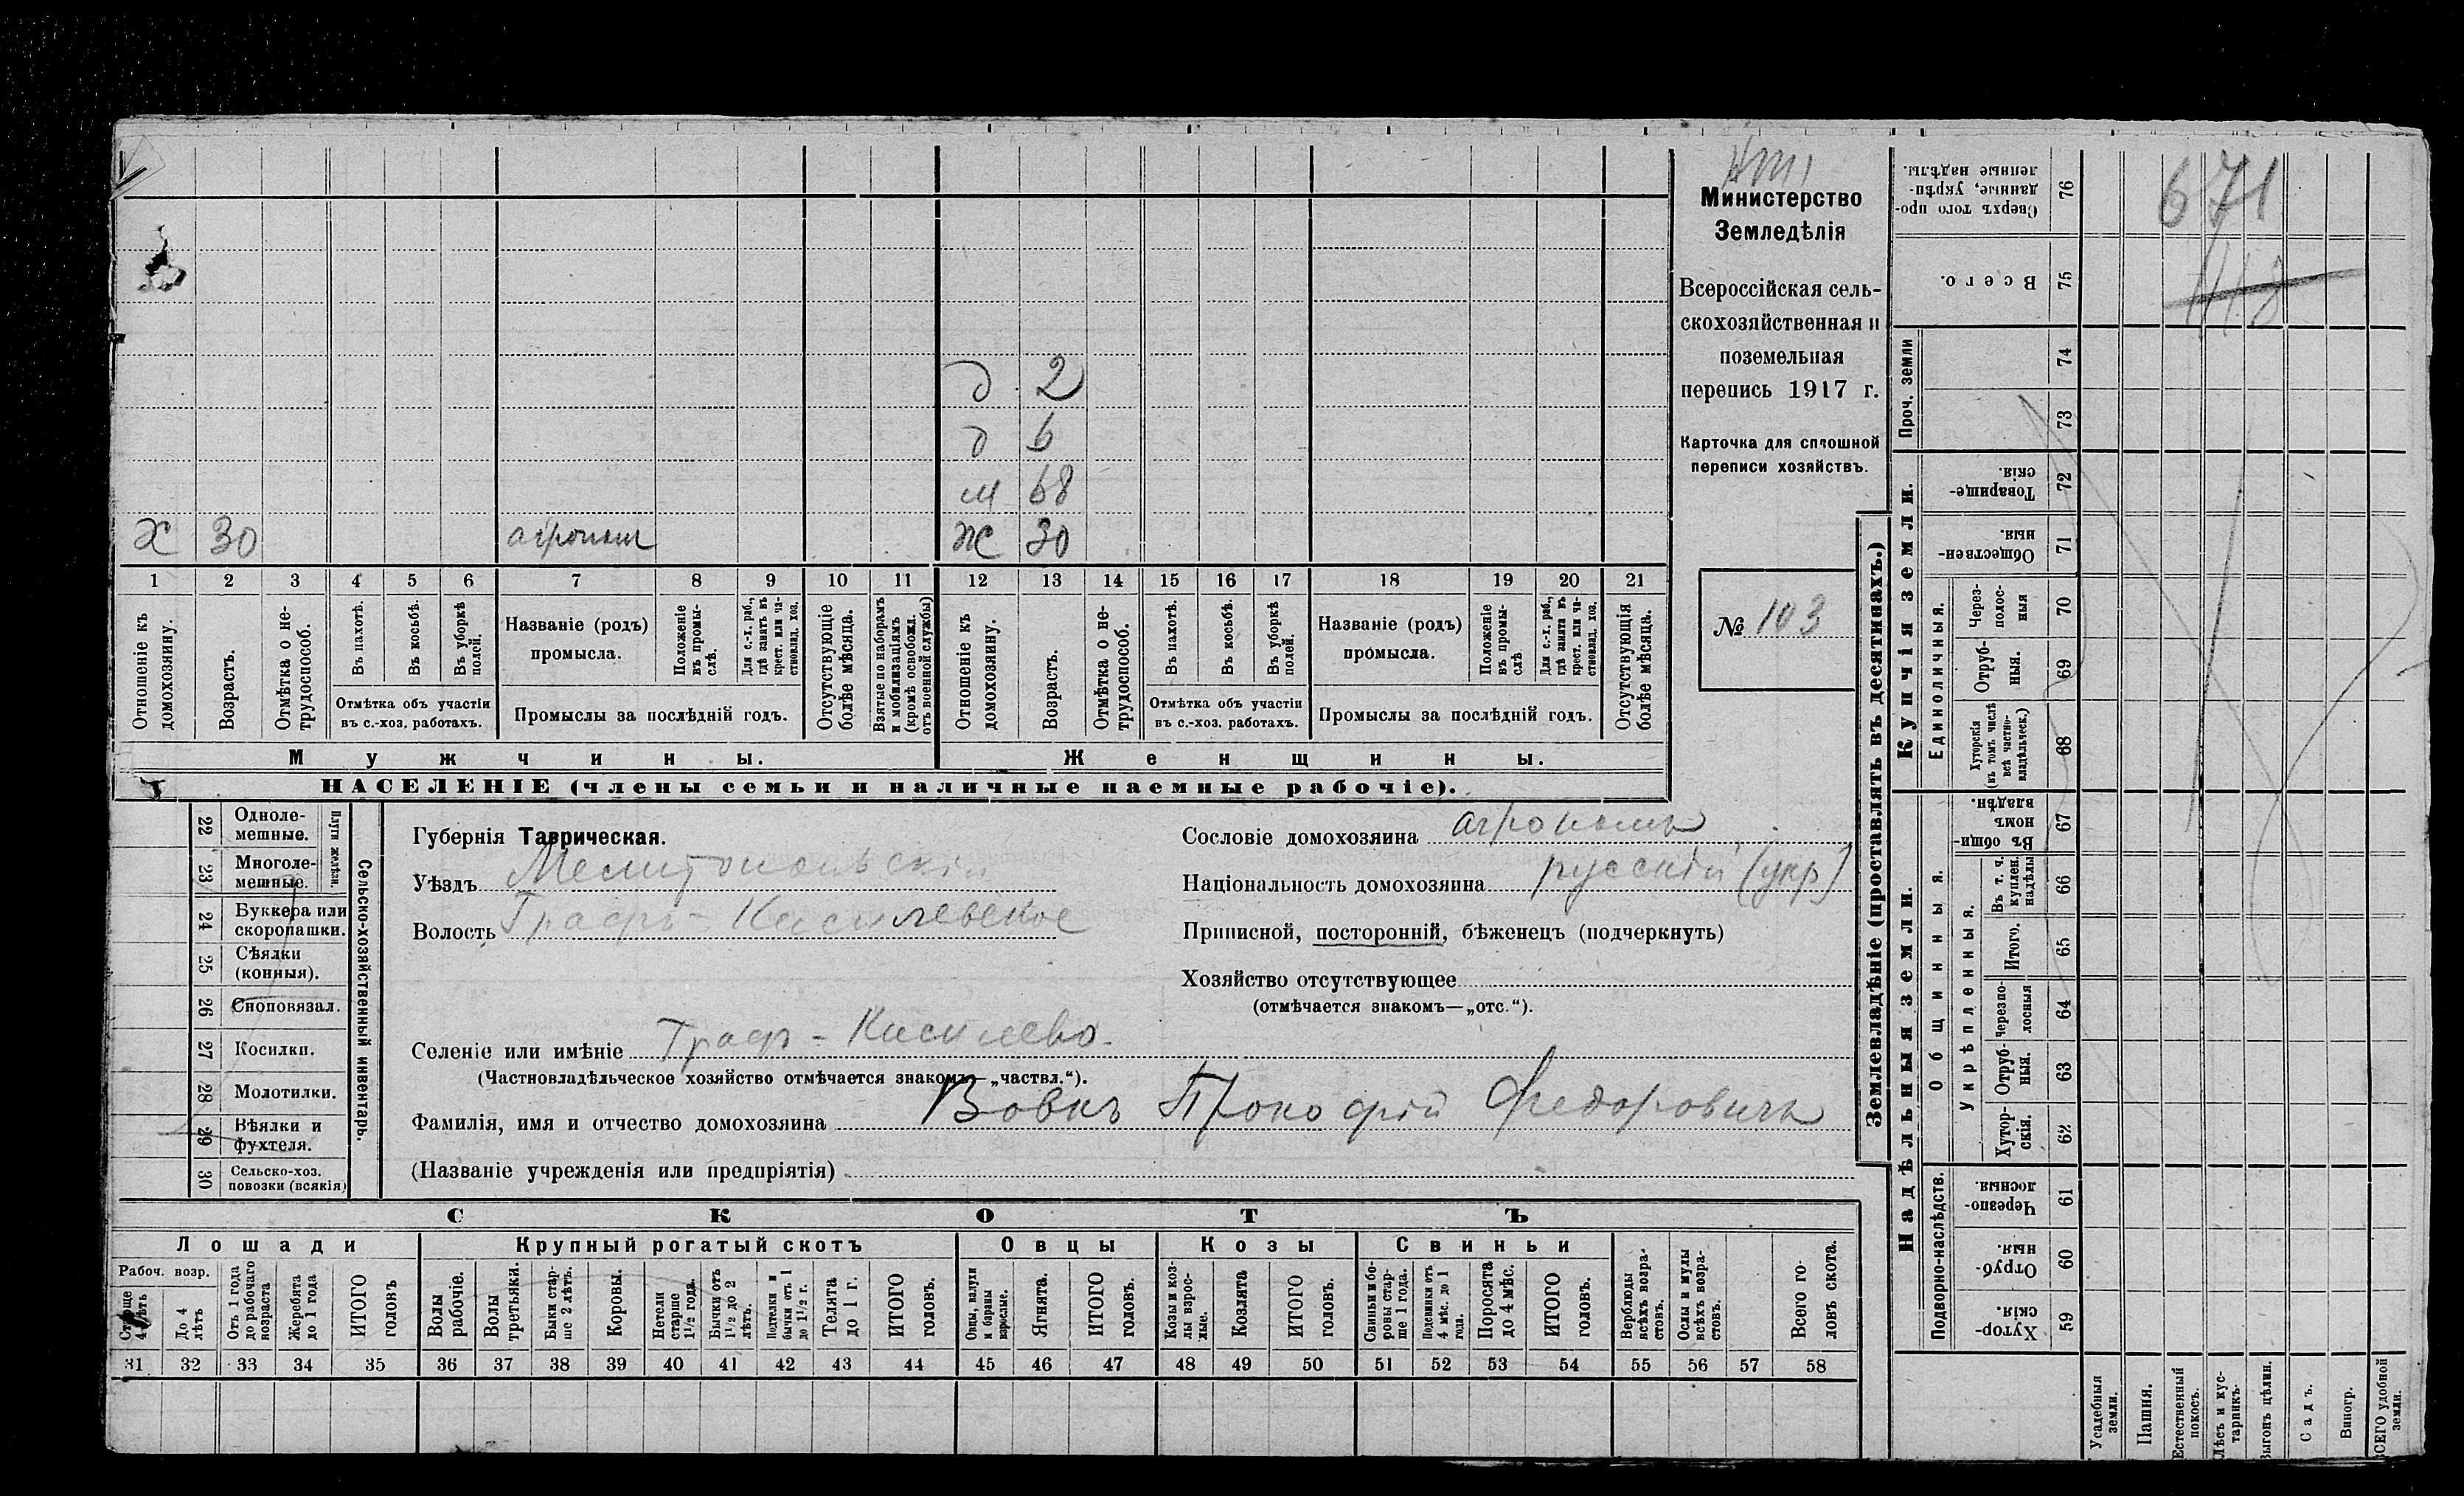 Министерство
Земледѣлія
Всероссійская сель-
скохозяйственная и
поземельная
перепись 1917 г.
Карточка для сплошной
переписи хозяйствъ.
№ 103
д 2
д 6
м 68
Х 30 агрономъ Ж 30
1 2 3 4 5 6 7 8 9 10 11 12 13 14 15 16 17 18 19 20 21
Отношеніе къ домохозяину.
Возрастъ.
Отмѣтка о не-трудоспособ.
Въ пахотѣ.
Въ косьбѣ.
Въ уборкѣ полей.
Отмѣтка объ участіи
въ с.-хоз. работахъ.
Названіе (родъ)
промысла.
Положеніе въ промы-слѣ.
Для с.-х. раб., гдѣ занятъ въ крест. или ча-стновлад. хоз.
Промыслы за послѣдній годъ.
Отсутствующіе болѣе мѣсяца.
Взятые по наборамъ и мобилизаціямъ (кромѣ освобожд. отъ военной службы)
Отношеніе къ домохозяину.
Возрастъ.
Отмѣтка о не-трудоспособ.
Въ пахотѣ.
Въ косьбѣ.
Въ уборкѣ полей.
Отмѣтка объ участіи
въ с.-хоз. работахъ.
Названіе (родъ)
промысла.
Положеніе въ промы-слѣ
Для с.-х. раб., гдѣ занята въ крест. или ча-стновлад. хоз.
Промыслы за послѣдній годъ.
Отсутствующія болѣе мѣсяца.
Мужчины. Женщины.
НАСЕЛЕНІЕ (члены семьи и наличные наемные рабочіе).
Сельско-хозяйственный инвентарь.
Плуги желѣзн.
22 Одноле-мешные.
23 Многоле-мешные.
24 Буккера или скоропашки.
25 Сѣялки (конныя).
26 Сноповязал.
27 Косилки.
28 Молотилки.
29 Вѣялки и фухтеля.
30 Сельско-хоз. повозки (всякія)
Губернія Таврическая.
Уѣздъ Мелитопольскій
Волость Графъ-Киселевское
Селеніе или имѣніе Графъ-Киселево
(Частновладѣльческое хозяйство отмѣчается знакомъ—„частвл.“).
Сословіе домохозяина агрономъ
Національность домохозяина русскій (укр)
Приписной, посторонній, бѣженецъ (подчеркнуть)
Хозяйство отсутствующее
(отмѣчается знакомъ—„отс.“).
Фамилія, имя и отчество домохозяина Вовкъ Прокофій Федоровичъ
(Названіе учрежденія или предпріятія)
СКОТЪ
Лошади Крупный рогатый скотъ Овцы Козы Свиньи
Рабоч. возр.
Старше 4 лѣтъ
До 4 лѣтъ
Отъ 1 года до рабочаго возраста
Жеребята до 1 года
ИТОГО головъ
Волы рабочіе.
Волы третьяки.
Быки стар-ше 2 лѣтъ.
Коровы.
Нетели старше 1½ года.
Бычки отъ 1½ до 2 лѣтъ.
Подтелки и бычки отъ 1 до 1½ г.
Телята до 1 г.
ИТОГО головъ.
Овцы, валухи и бараны взрослые.
Ягнята.
ИТОГО головъ.
Козы и коз-лы взрос-лые.
Козлята
ИТОГО головъ.
Свиньи и бо-ровы стар-ше 1 года.
Подсвинки отъ 4 мѣс. до 1 года.
Поросята до 4 мѣс.
ИТОГО головъ.
Верблюды всѣхъ возра-стовъ.
Ослы и мулы всѣхъ возра-стовъ.
Всего го-ловъ скота.
31 32 33 34 35 36 37 38 39 40 41 42 43 44 45 46 47 48 49 50 51 52 53 54 55 56 57 58
Землевладѣніе (проставлять въ десятинахъ.)
Надѣльныя земли. Купчія земли. Проч. земли
Подворно-наслѣдств.
Общинныя.
Укрѣпленныя.
Единоличныя.
Сверхъ того про-данные, укрѣп-ленные надѣлы. 76
Всего. 75
74
73
Товарище-скія. 72
Обществен-ныя. 71
Через-полос-ныя 70
Отруб-ныя. 69
Хуторскія (въ томъ числѣ всѣ частно-владѣльческ.) 68
Въ общи-номъ владѣн. 67
Въ т. ч. куплен. надѣлы 66
Итого. 65
Черезпо-лосныя 64
Отруб-ныя. 63
Хутор-скія. 62
Черезпо-лосныя. 61
Отруб-ныя. 60
Хутор-скія. 59
Усадебныя земли.
Пашня.
Естественный покосъ.
Лѣсъ и кус-тарникъ.
Выгонъ цѣлин.
Садъ.
Виногр.
ВСЕГО удобной земли.
671